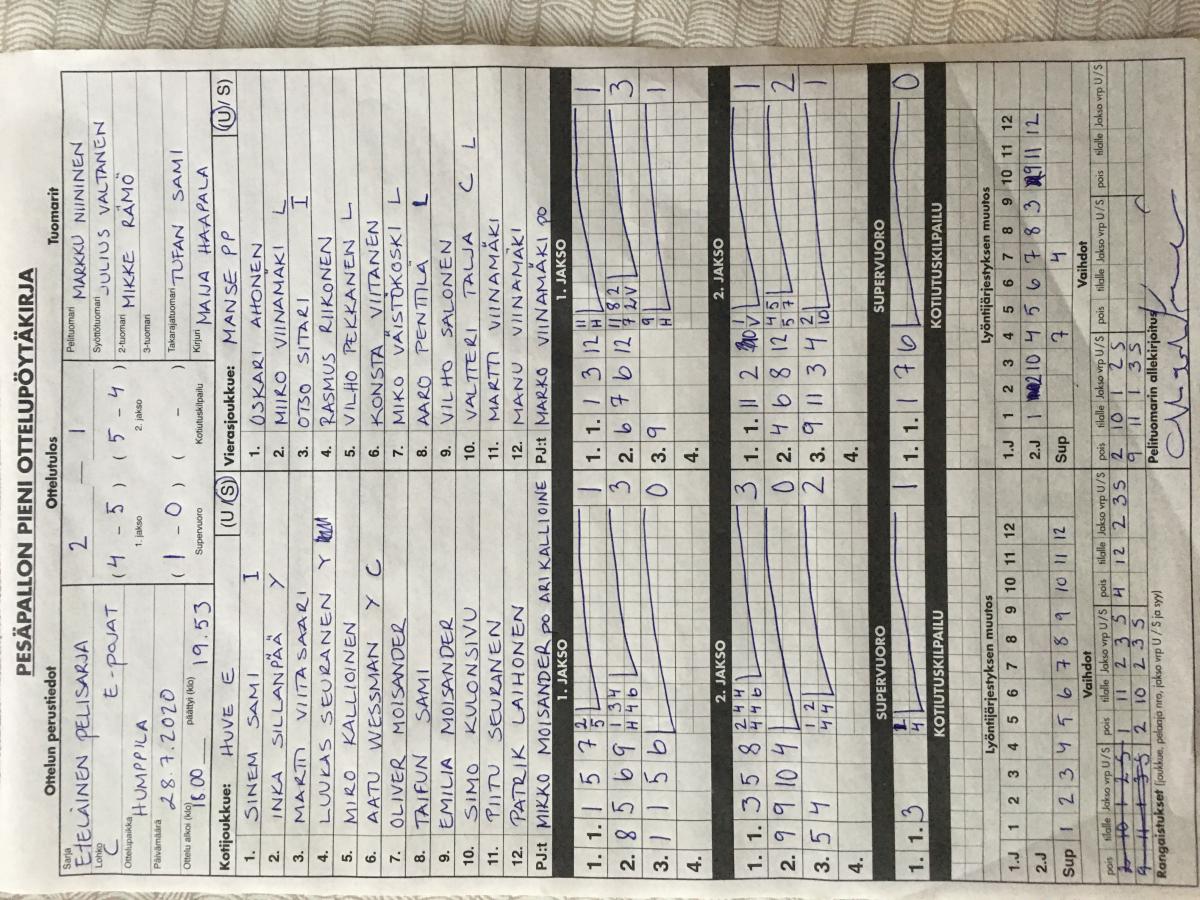 PESÄPALLON PIENI OTTELUPÖYTÄKIRJA
Ottelun perustiedot Ottelutulos Tuomarit
Sarja ETELÄINEN PELISARJA
Lohko C E-POJAT
Ottelupaikka HUMPPILA
Päivämäärä 28.7.2020
Ottelu alkoi (klo) 1800 päättyi (klo) 19.53
2 — 1
(4 - 5) (5 - 4)
1. jakso 2. jakso
(1 - 0) ( - )
Supervuoro Kotiutuskilpailu
Pelituomari MARKKU NIININEN
Syöttötuomari JULIUS VALTANEN
2-tuomari MIKKE RÄMÖ
3-tuomari
Takarajatuomari TUFAN SAMI
Kirjuri MAIJA HAAPALA
Kotijoukkue: HUVE E (U/S)
1. SINEM SAMI I
2. INKA SILLANPÄÄ Y
3. MARTTI VIITASAARI
4. LUUKAS SEURANEN Y
5. MIRO KALLIOINEN
6. AATU WESSMAN Y C
7. OLIVER MOISANDER
8. TAIFUN SAMI
9. EMILIA MOISANDER
10. SIMO KULONSIVU
11. PIITU SEURANEN
12. PATRIK LAIHONEN
PJ:t MIKKO MOISANDER PO ARI KALLIOINE
Vierasjoukkue: MANSE PP (U/S)
1. OSKARI AHONEN
2. MIIRO VIINAMÄKI L
3. OTSO SITARI I
4. RASMUS RIIKONEN
5. VILHO PEKKANEN L
6. KONSTA VIITANEN
7. MIKO VÄISTÖKOSKI L
8. AARO PENTTILÄ L
9. VILHO SALONEN
10. VALTTERI TALJA C L
11. MARTTI VIINAMÄKI
12. MANU VIINAMÄKI
PJ:t MARKO VIINAMÄKI PO
1. JAKSO
1. 1. 1 5 7 2 5 1
2. 8 5 6 9 1 3 4 H 4 6 3
3. 1 1 5 6 0
4.
1. JAKSO
1. 1. 1 3 12 11 H 1
2. 6 7 6 12 11 8 2 7 2 V 3
3. 9 9 H 1
4.
2. JAKSO
1. 1. 3 5 8 2 4 4 4 4 6 3
2. 9 9 10 4 0
3. 5 4 1 2 4 4 2
4.
2. JAKSO
1. 1. 11 2 1 V 1
2. 4 6 8 12 4 5 5 7 2
3. 9 11 3 4 2 10 1
4.
SUPERVUORO
1. 1. 3 4 1
SUPERVUORO
1. 1. 1 7 6 0
KOTIUTUSKILPAILU
KOTIUTUSKILPAILU
Lyöntijärjestyksen muutos
1.J 1 2 3 4 5 6 7 8 9 10 11 12
2.J
Sup 1 2 3 4 5 6 7 8 9 10 11 12
Lyöntijärjestyksen muutos
1.J 1 2 3 4 5 6 7 8 9 10 11 12
2.J 1 2 10 4 5 6 7 8 3 9 11 12
Sup 7 4
Vaihdot
pois tilalle Jakso vrp U/S pois tilalle Jakso vrp U/S pois tilalle Jakso vrp U/S
2 10 1 2 5 1 11 2 3 5 4 12 2 3 5
9 11 1 3 5 2 10 2 3 5
Vaihdot
pois tilalle Jakso vrp U/S pois tilalle Jakso vrp U/S pois tilalle Jakso vrp U/S
2 10 1 2 S
9 11 1 3 S
Rangaistukset (joukkue, pelaaja nro, jakso vrp U / S ja syy)
Pelituomarin allekirjoitus